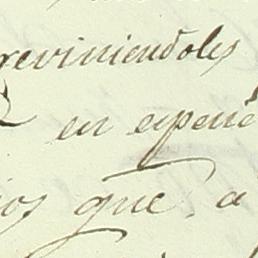 reviniendoles
en espe
ios que, a